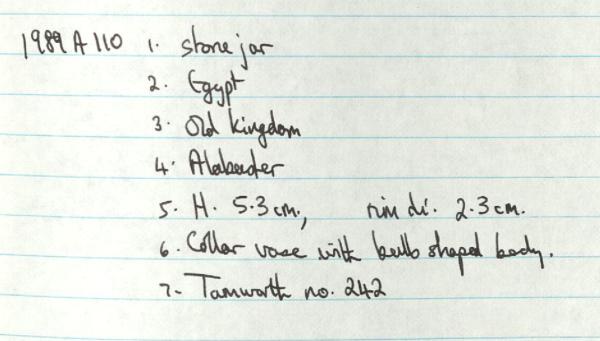 1989 A 110 1. Stone jar
2. Egypt
3. Old kingdom
4. Alabaster
5. H. 5.3 cm., rim di. 2.3 cm.
6. Collar vase with bulb shaped body.
7. Tamworth no. 242